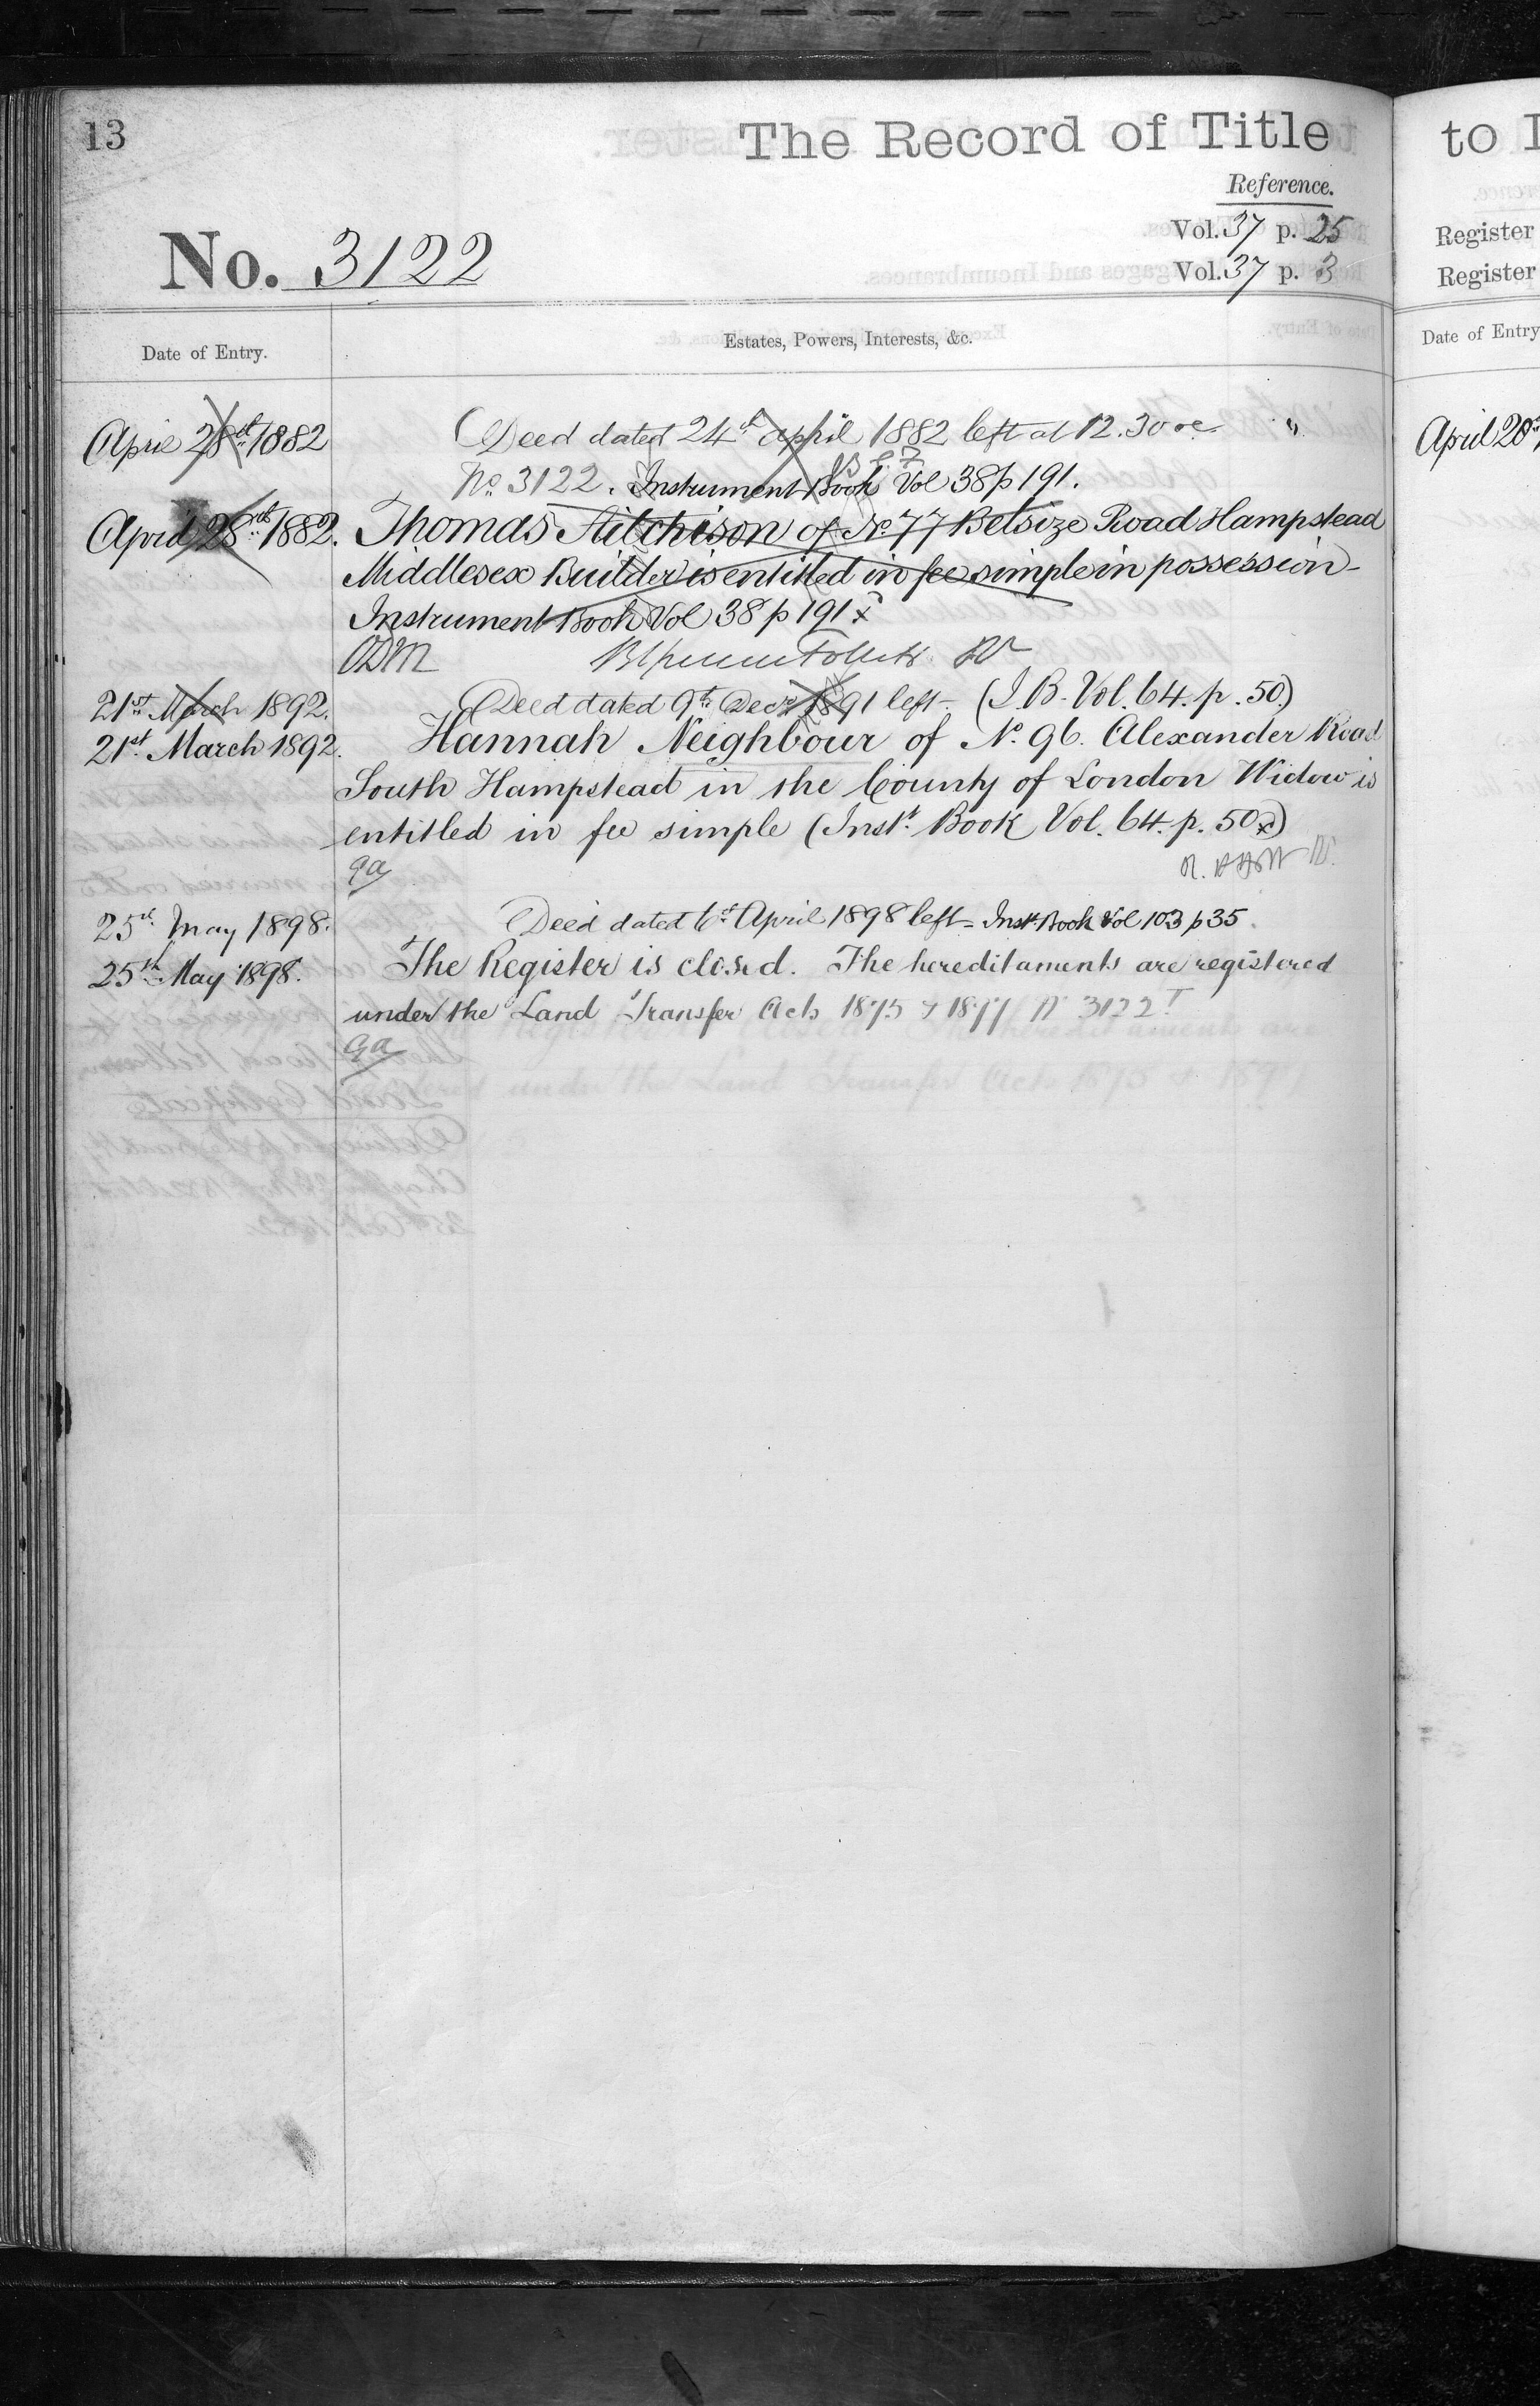 13
The Record of Title
Reference.
Vol. 37 p. 25
Vol. 37 p. 3
No. 3122
Date of Entry.
Estates, Powers, Interests, &c.
April 28th 1882
Deed dated 24th April 1882 left at 12.30
No 3122. Instrument Book Vol 38 p 191.
April 28th 1882.
Thomas Aitchison of No 77 Belsize Road Hampstead
Middlesex Builder is entitled in fee simple in possession
Instrument Book Vol 38 p 191
ODM
21st March 1892.
Deed dated 9th Decr 1891 left – (I. B. Vol. 64. p. 50.)
21st March 1892.
Hannah Neighbour of No. 96. Alexander Road
South Hampstead in the County of London Widow is
entitled in fee simple (Instt. Book Vol. 64. p. 50)
ga
25th May 1898.
Deed dated 6th April 1898 left – Inst. Book Vol 103 p 35.
25th May 1898.
The Register is closed. The hereditaments are registered
under the Land Transfer Acts 1875 & 1897 No 3122 T
ga
to
Register
Register
Date of Entry
April 28th